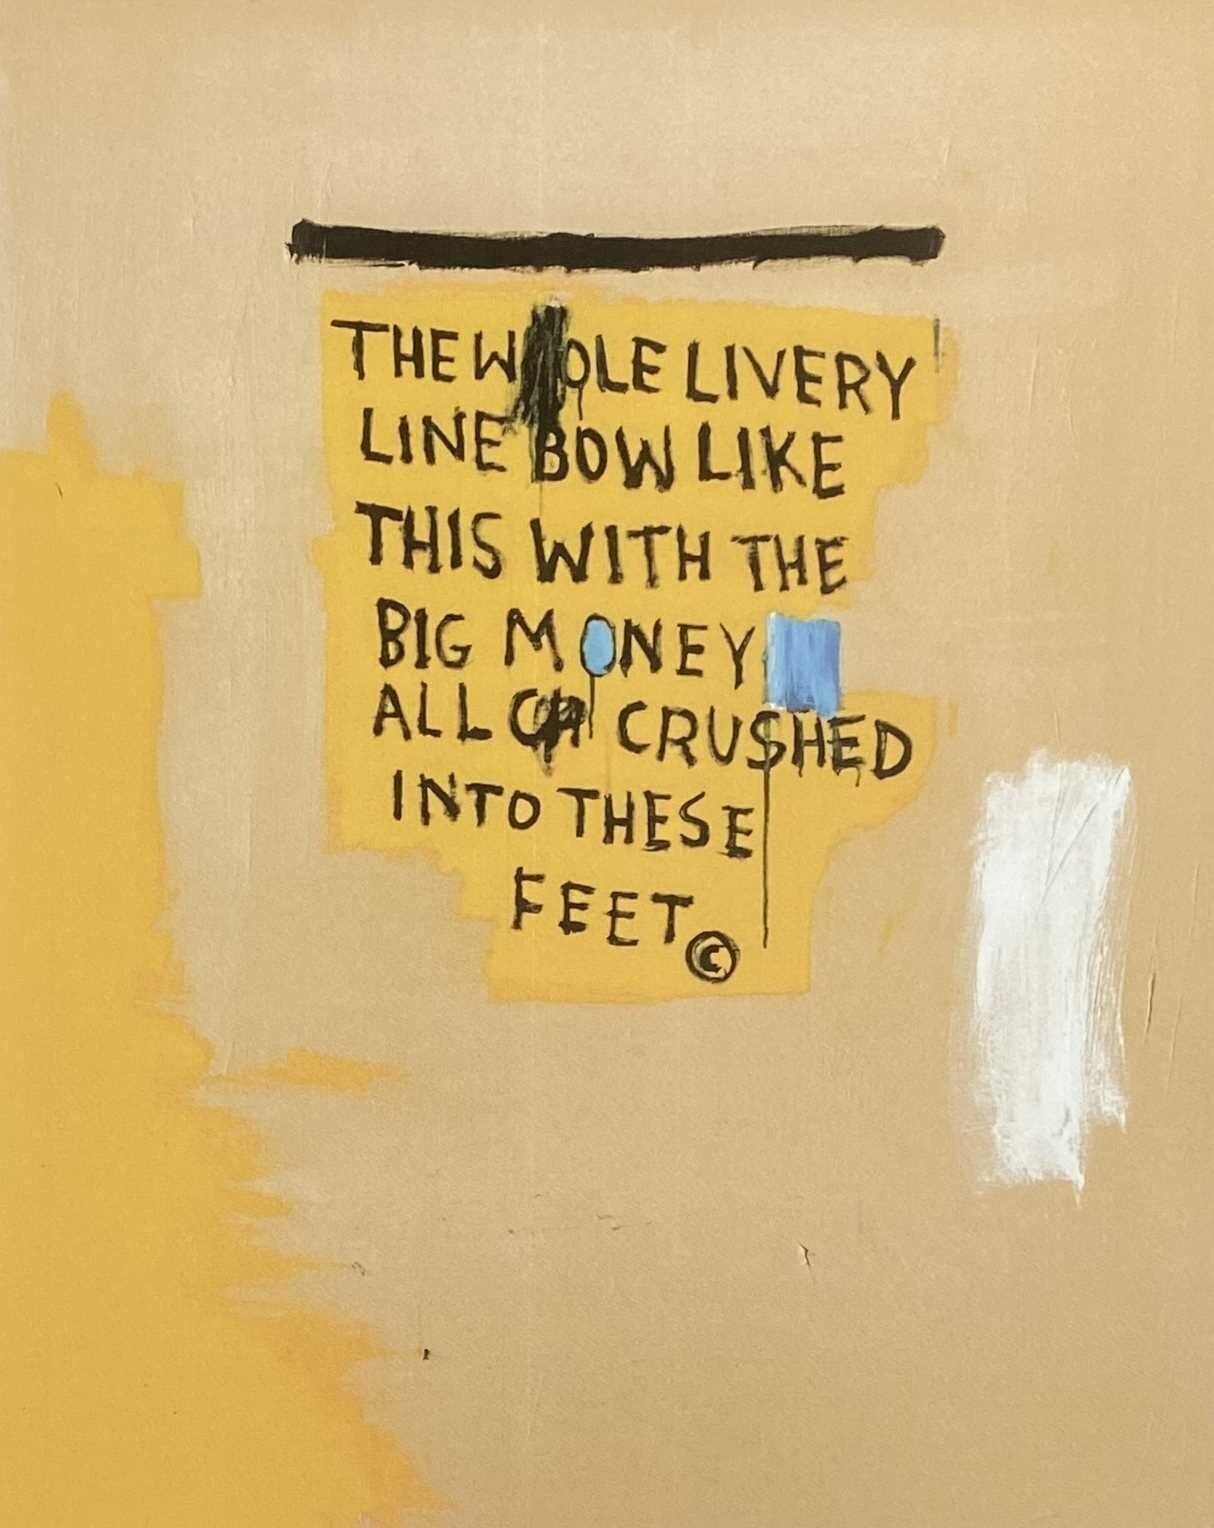 THE WOLE LIVERY
LINE BOW LIKE
THIS WITH THE
BIG MONEY
ALL CRUSHED
INTO THESE
FEET ©